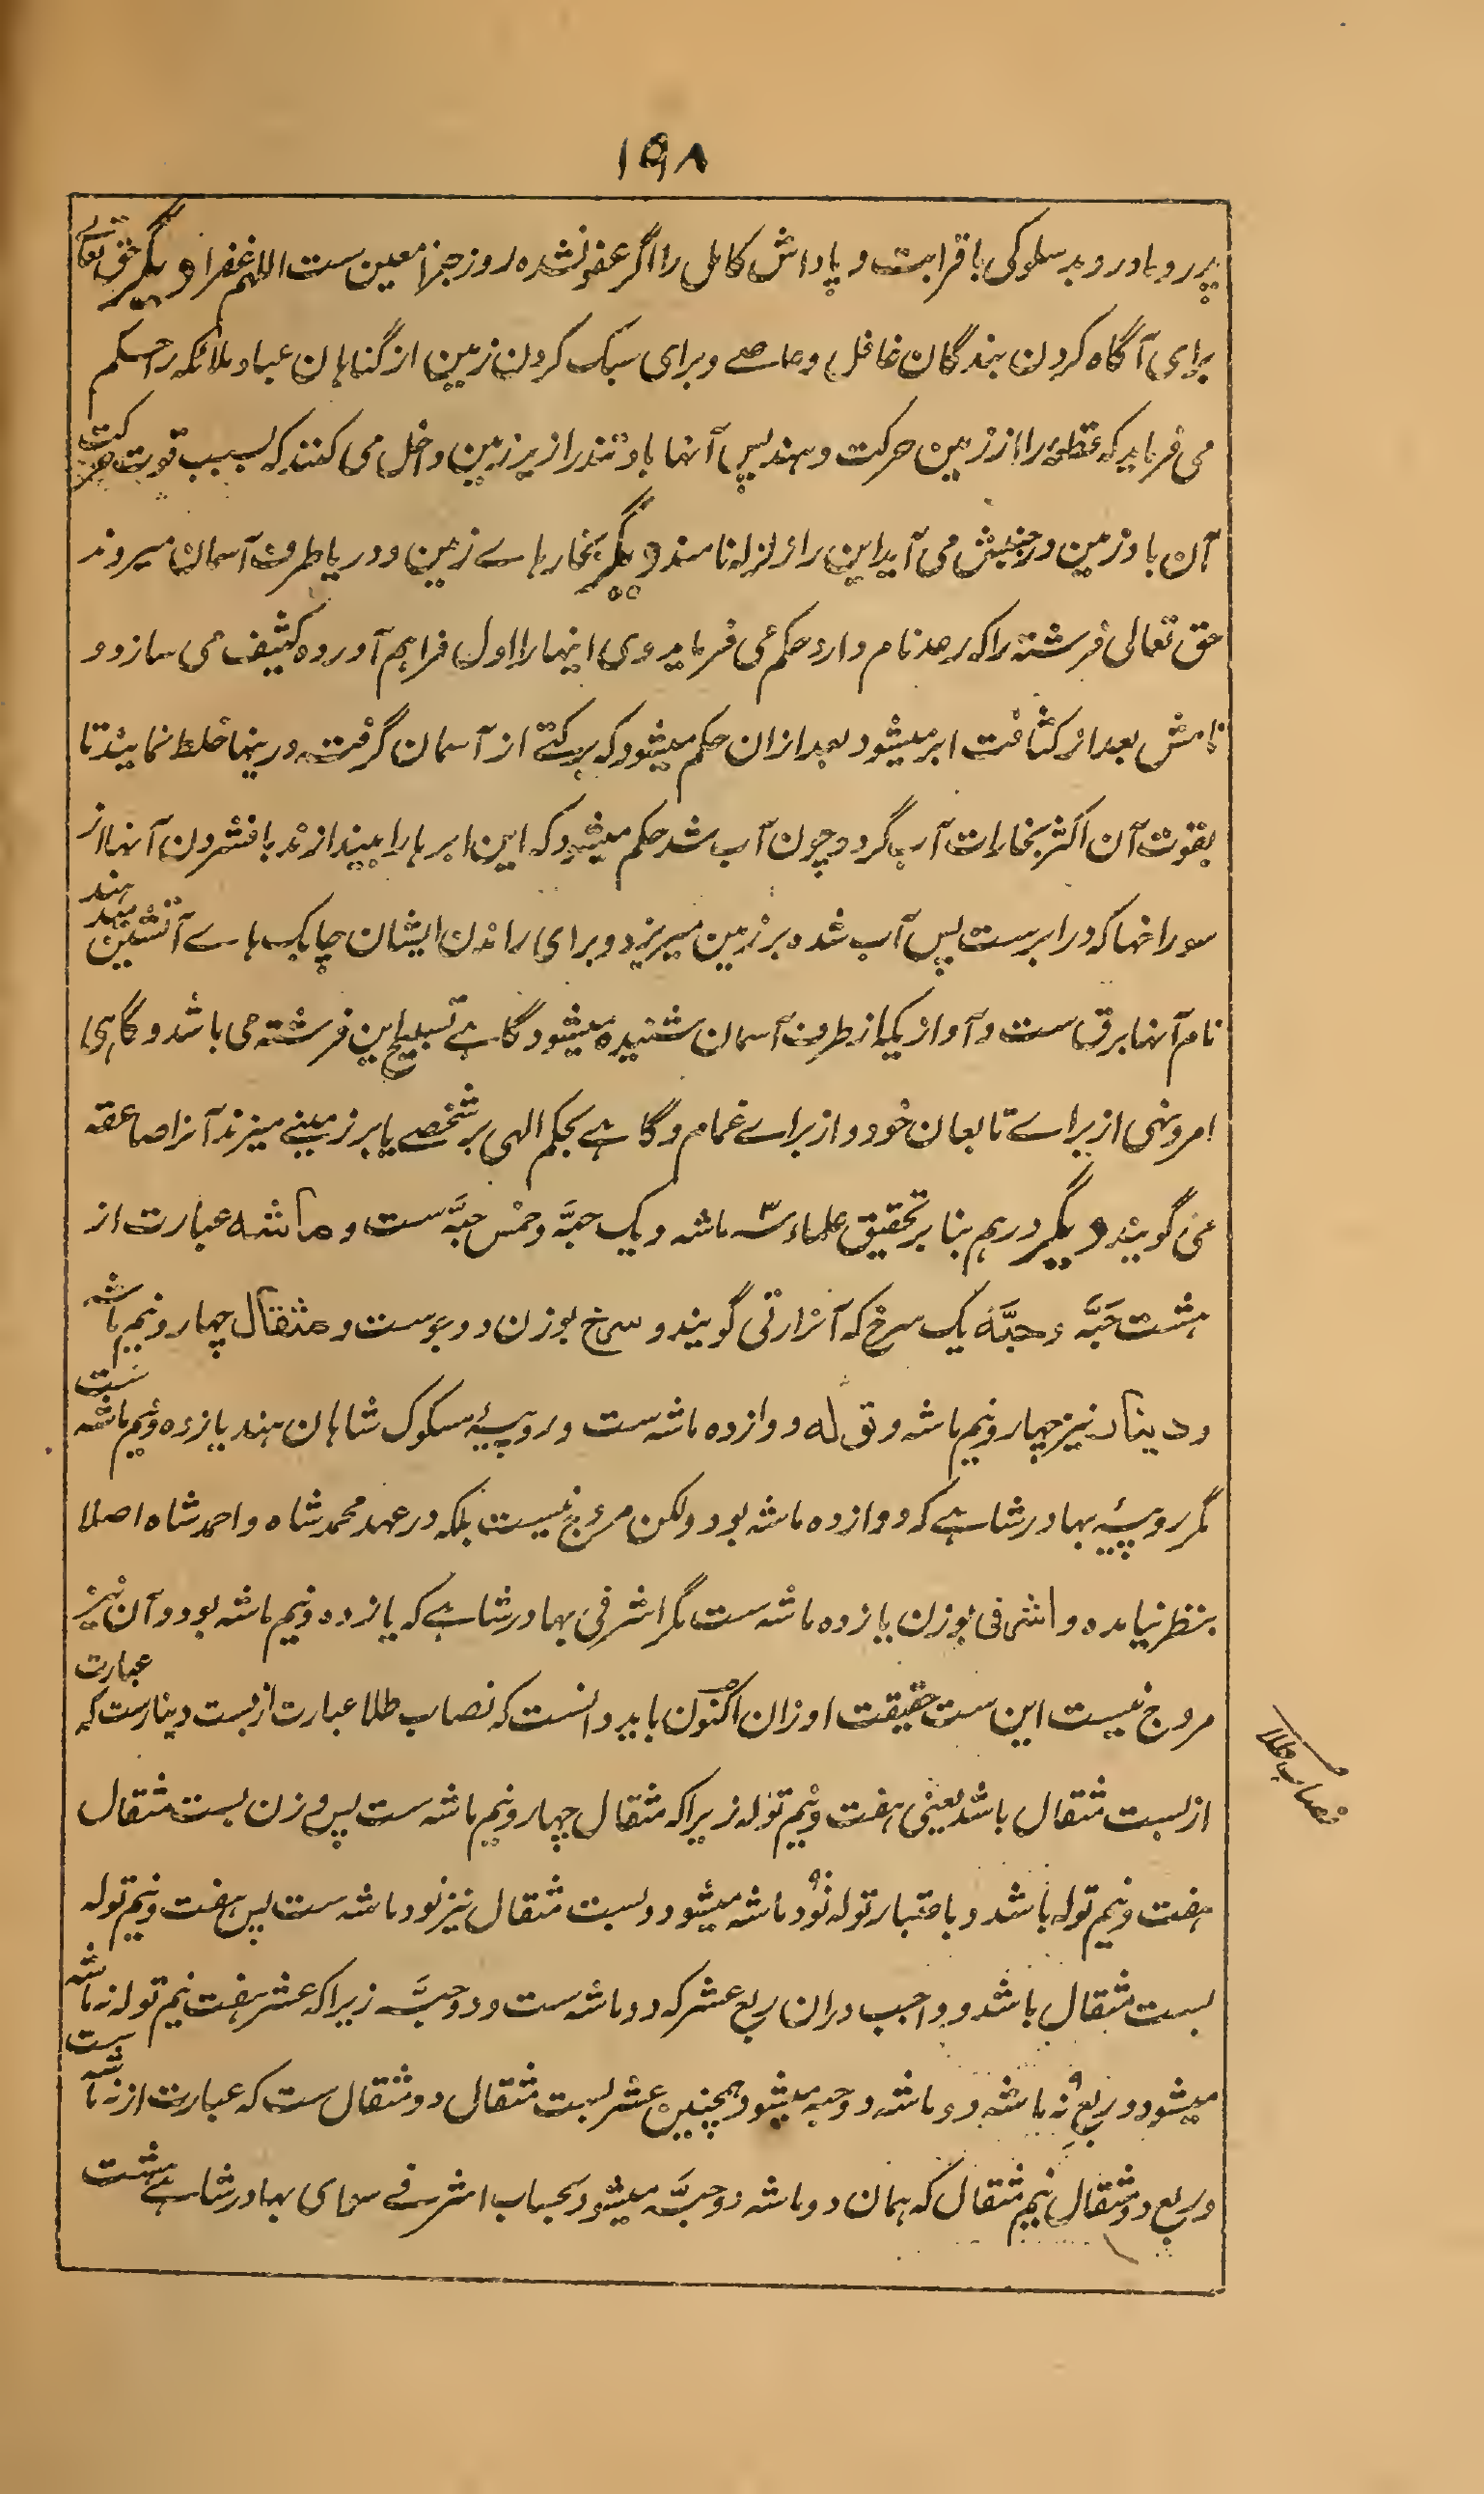 ۱۹۸
پدر و مادر و بد سلوکی با قرابت و پاداش کامل را اگر عفو نشده روز جزا معین ست اللهم غفرا و دیگر حق تعالی
برای آگاه کردن بندگان غافل و عاصے و برای سبک کردن زمین از گناہان عباد ملائکه را حکم
می فرماید که قطعۂ را از زمین حرکت دهند پس آنها باد تند را زیر زمین داخل می کنند که بسبب قوت حرکت
آن باد زمین در جنبش می آید این را زلزله نامند دیگر بخارہاے زمین و دریا طرف آسمان میروند
حق تعالی فرشته را که رعد نام دارد حکم می فرماید وی اینها را اول فراہم آورده کثیف می سازد و
نامش بعد از کثافت ابر میشود بعد ازان حکم میشود که برکتے از آسمان گرفته درینها خلط نمایند تا
بقوت آن اکثر بخارات آب گردد چون آب شد حکم میشود که این ابر ہا را بیندازند با فشردن آنها از
سوراخها که در ابرست پس آب شده بر زمین میریزد و برای راندن ایشان چابک ہاے آتشین
نام آنها برق ست و آوازیکه از طرف آسمان شنیده میشود گاہے تسبیح این فرشته می باشد و گاہی
امر و نہی از براے تابعان خود و از براے غمام و گاہے بحکم الہی بر شخصے یا بر زمینے میزند آنرا صاعقه
می گویند دیگر درہم بنا بر تحقیق علماء سه ماشه و یک حبَّه و خمس حبَّه ست و ماشه عبارت از
ہشت حَبَّه و حبَّه یک سرخ که آنرا رتی گویند و سرخ بوزن دو جوست و مثقال چہار و نیم ماشه
و دینار نیز چہار و نیم ماشه و توله دوازده ماشه ست و روپیۂ مسکوک شاہان ہند یازده و نیم ماشه ست
مگر روپیۂ بہادر شاہے که دوازده ماشه بود ولکن مروج نیست بلکه در عہد محمد شاه و احمد شاه اصلا
بنظر نیامده و اشرفی بوزن یازده ماشه ست مگر اشرفی بہادر شاہے که یازده و نیم ماشه بود و آن نیز
مروج نیست این ست حقیقت اوزان اکنون باید دانست که نصاب طلا عبارت از بست دینارست که عبارت
از بست مثقال باشد یعنی ہفت و نیم توله زیرا که مثقال چہار و نیم ماشه ست پس وزن بست مثقال
ہفت و نیم توله باشد و باعتبار توله نود ماشه میشود و بست مثقال نیز نود ماشه ست پس ہفت و نیم توله
بست مثقال باشد و واجب دران ربع عشر که دو ماشه ست و دو حبَّه زیرا که عشر ہفت نیم توله نه ماشه
میشود و ربع نه ماشه دو ماشه دو حبه میشود ہمچنین عشر بست مثقال دو مثقال ست که عبارت از نه ماشه ست
و ربع دو مثقال نیم مثقال که ہمان دو ماشه دو حبَّه میشود بحساب اشرفے سواى بہادر شاہے ہشت
نصاب طلا